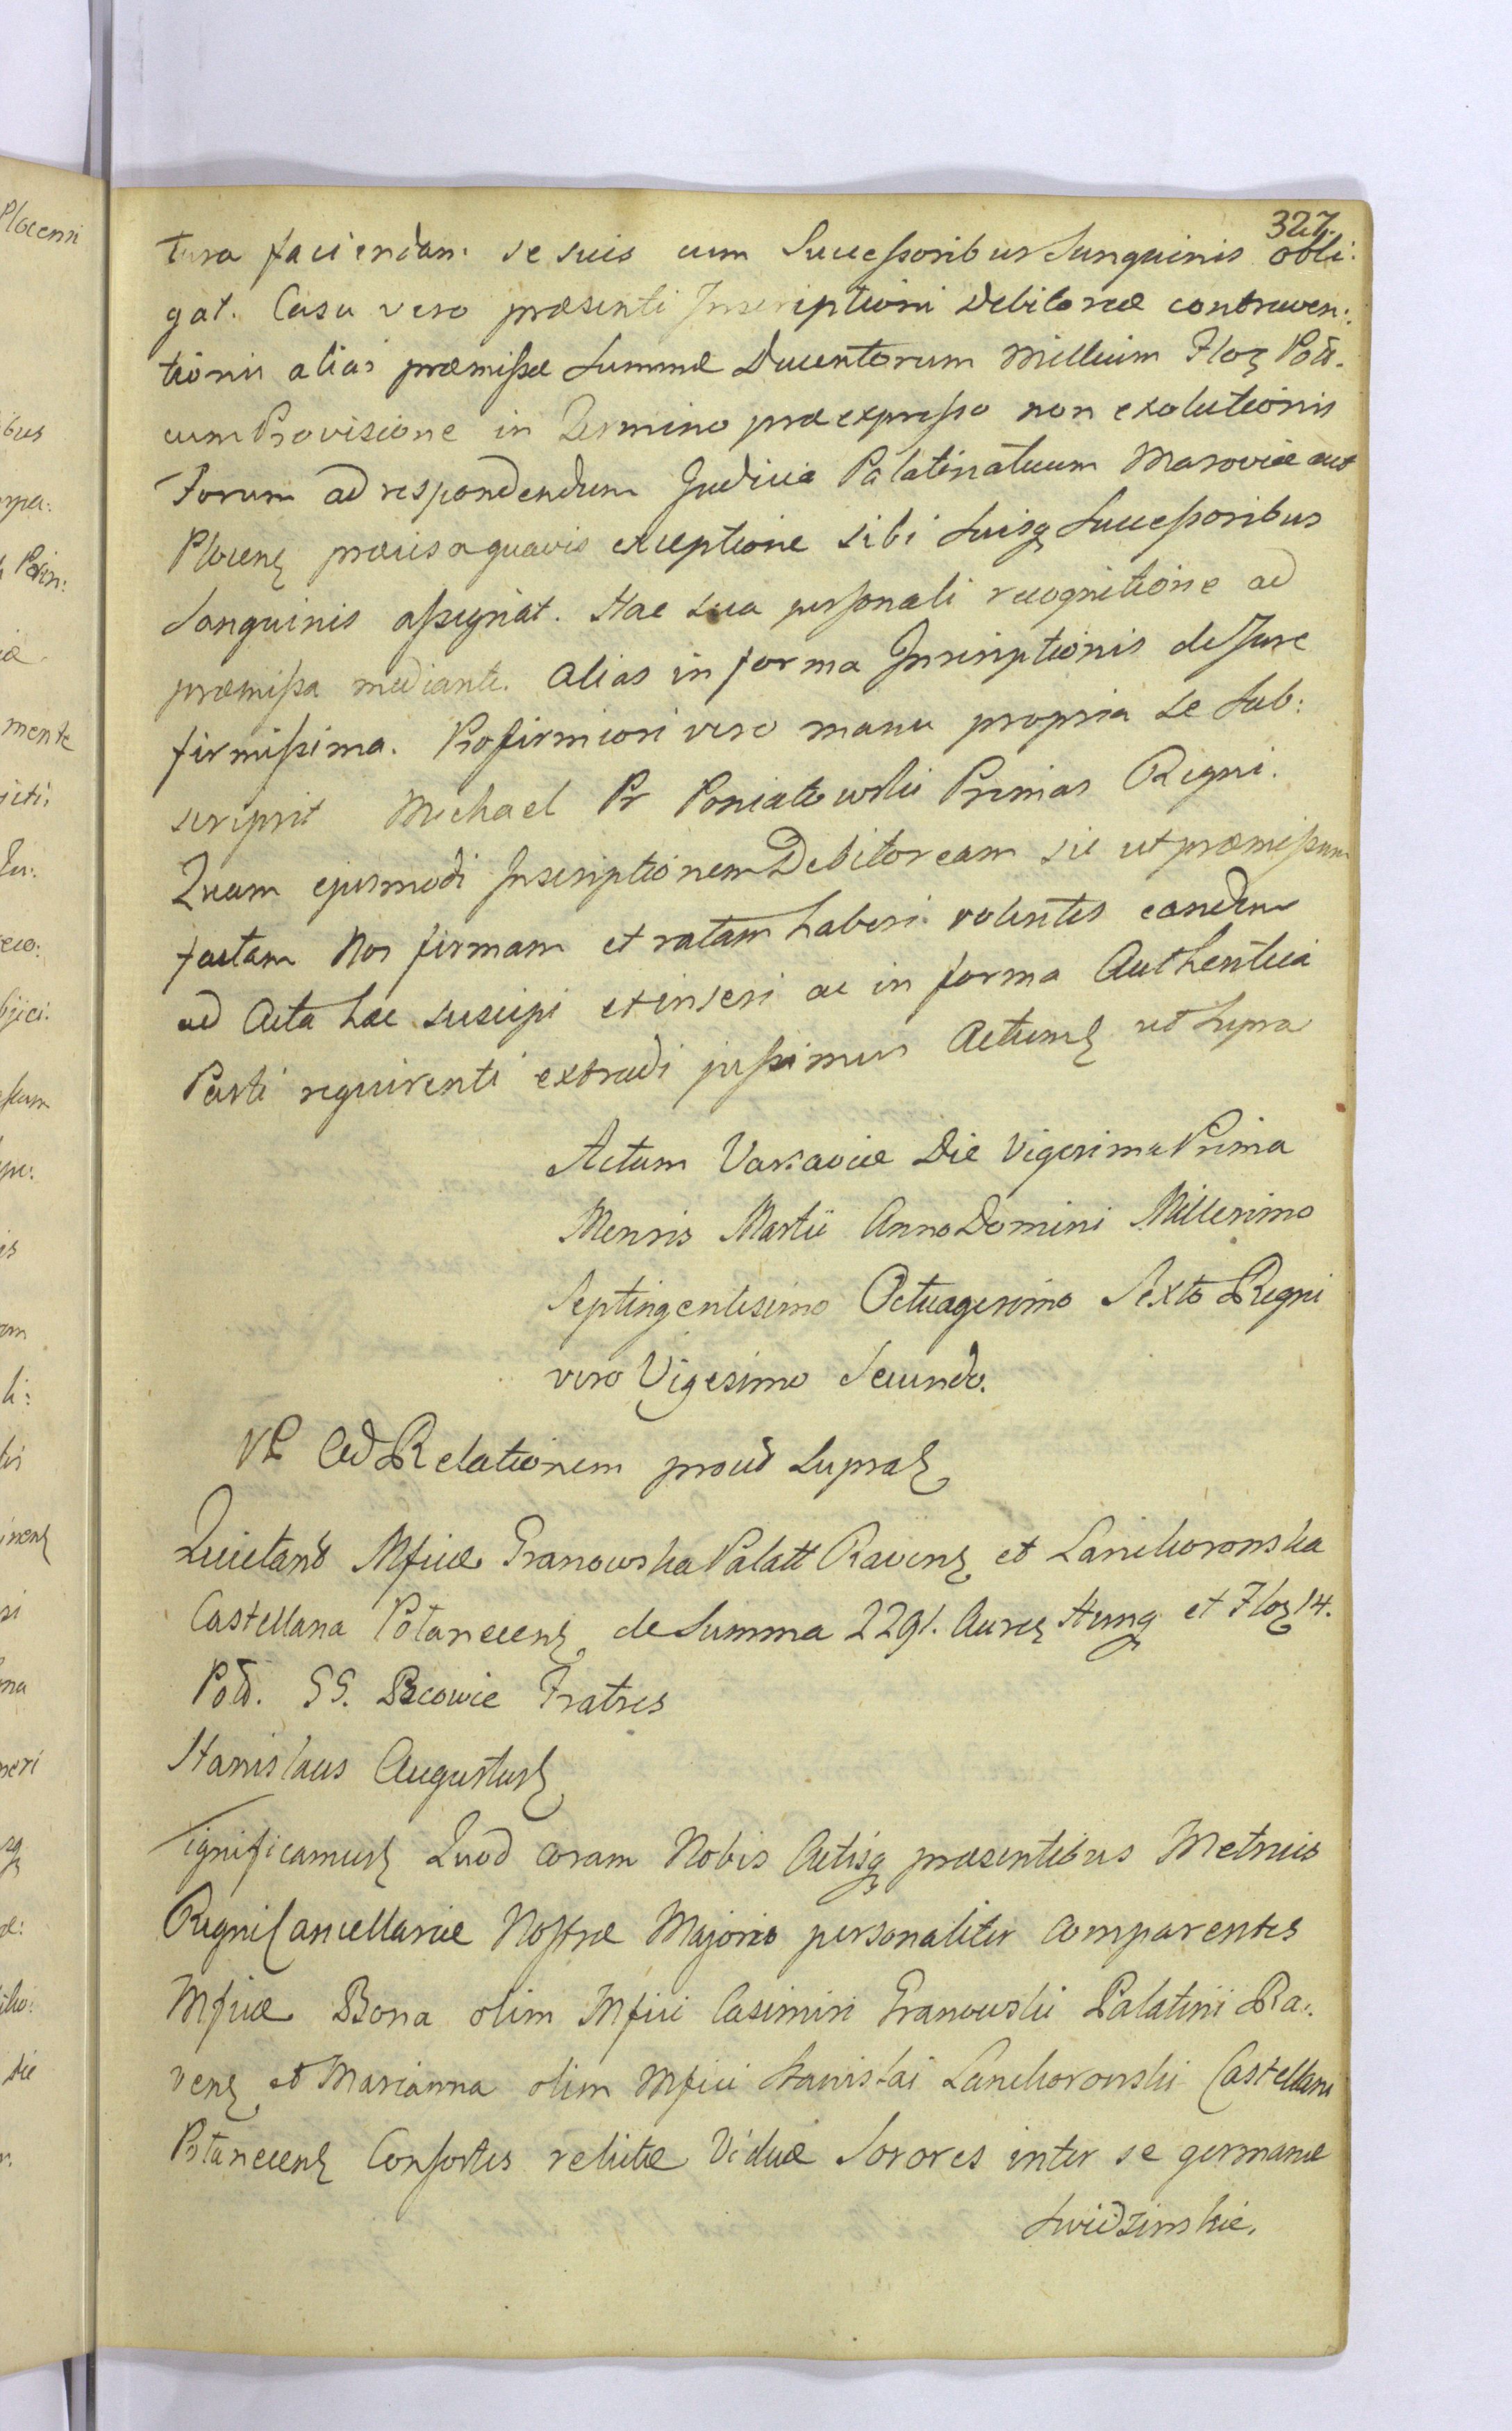 327.
tura faciendam se suis cum Successoribus Sanguinis obli:
gat. Casu vero præsenti Inscriptioni Debitoreæ contraven:
tionis alias præmissæ Summæ Ducentorum Millium Flor Poll.
cum Provisione in Termino præexpresso non exolutionis
Forum ad respondendum Judicia Palatinatuum Masoviæ aut
Plocen præcisa quavis exceptione sibi Suisq Successoribus
Sanguinis assignat. Hac sua personali recognitione ad
præmissa mediante. Alias in forma Inscriptionis de Jure
firmissima. Pro firmiori vero manu propria se Sub:
scripsit Michael Pr Poniatowski Primas Regni.
Quam ejusmodi Inscriptionem Debitoream sic ut præmissum
factam Nos firmam et ratam haberi volentes eandem
ad Acta hæc suscipi et inseri ac in forma Authentica
Parti requirenti extradi jussimus Actum ut Supra
Actum Varsaviæ Die Vigesima Prima
Mensis Martii Anno Domini Millesimo
Septingentesimo Octuagesimo Sexto Regni
vero Vigesimo Secundo.
Ad Relationem prout Supra
Quietant Mficæ Granowska Palatt Raven et Lanckoronska
Castellana Połanecen de Summa 2291. Aur Hung et Flor 14.
Poll. GG. Fratres
Stanislaus Augustus
Significamus Quod coram Nobis Actisq præsentibus Metrices
Regni Cancellariæ Nostræ Majoris personaliter comparentes
Mficæ Bona olim Mfici Casimiri Granowski Palatini Ra:
ven et Marianna olim Mfici Stanislai Lanckoronski Castellani
Połanecen Consortes relictæ Viduæ Sorores inter se germanæ
Swidzinskie.